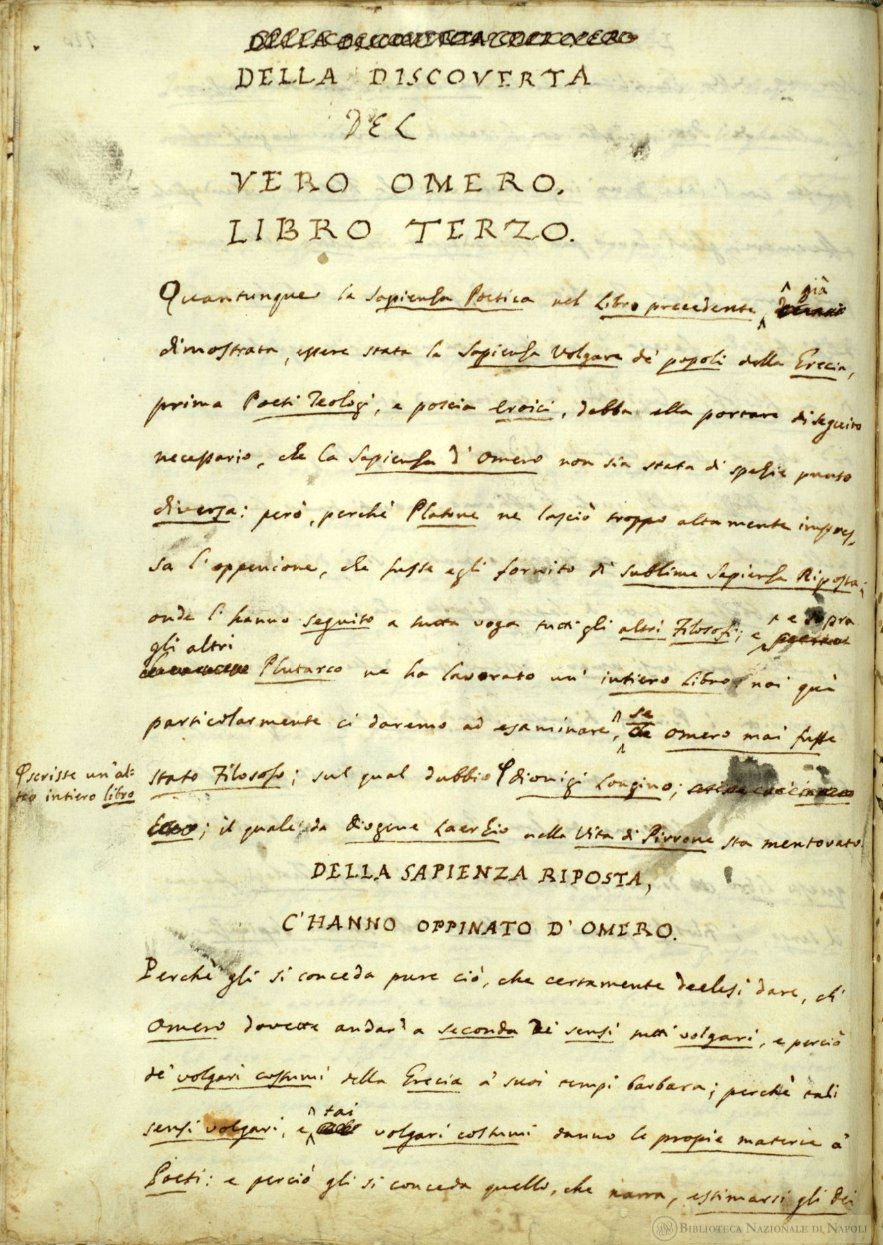 DELLA DISCOVERTA
DEL
VERO OMERO.
LIBRO TERZO.
Quantunque la Sapienza Poetica nel Libro precedente, già
dimostrata, essere stata la Sapienza Volgare de' popoli della Grecia,
prima Poeti Teologi, e poscia Eroici, debba ella portare di seguito
necessario, che la Sapienza d' Omero non sia stata di spezie punto
diversa: però, perchè Platone ne lasciò troppo altamente impres-
sa l' oppenione, che fusse egli fornito di sublime Sapienza Riposta;
onde l' hanno seguito a tutta voga tutti gli altri Filosofi; e sopra
gli altri
Plutarco ne ha lavorato un' intiero Libro; noi quì
particolarmente ci daremo ad esaminare, se Omero mai fusse
stato Filosofo; sul qual dubbio Dionigi Longino;
scrisse un' al-
tro intiero libro
; il quale da Diogene Laerzio nella Vita di Pirrone sta mentovato.
DELLA SAPIENZA RIPOSTA,
C'HANNO OPPINATO D'OMERO.
Perchè gli si conceda pure ciò, che certamente deelesi dare, ch'
Omero dovette andar' a seconda de' sensi tutti volgari, e perciò
de' volgari costumi della Grecia a' suoi tempi barbara; perchè tali
sensi volgari, e tai volgari costumi danno le propie materie a'
Poeti: e perciò gli si conceda quello, che narra, estimarsi gli dei
BIBLIOTECA NAZIONALE DI NAPOLI